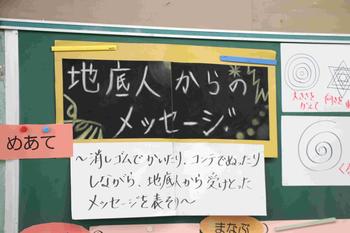 地底人からの
メッセージ
めあて
～消しゴムでかいたり、コンテでぬったり
しながら、地底人から受けとった
メッセージを表そう～
大きさを
かえて
まなぶ